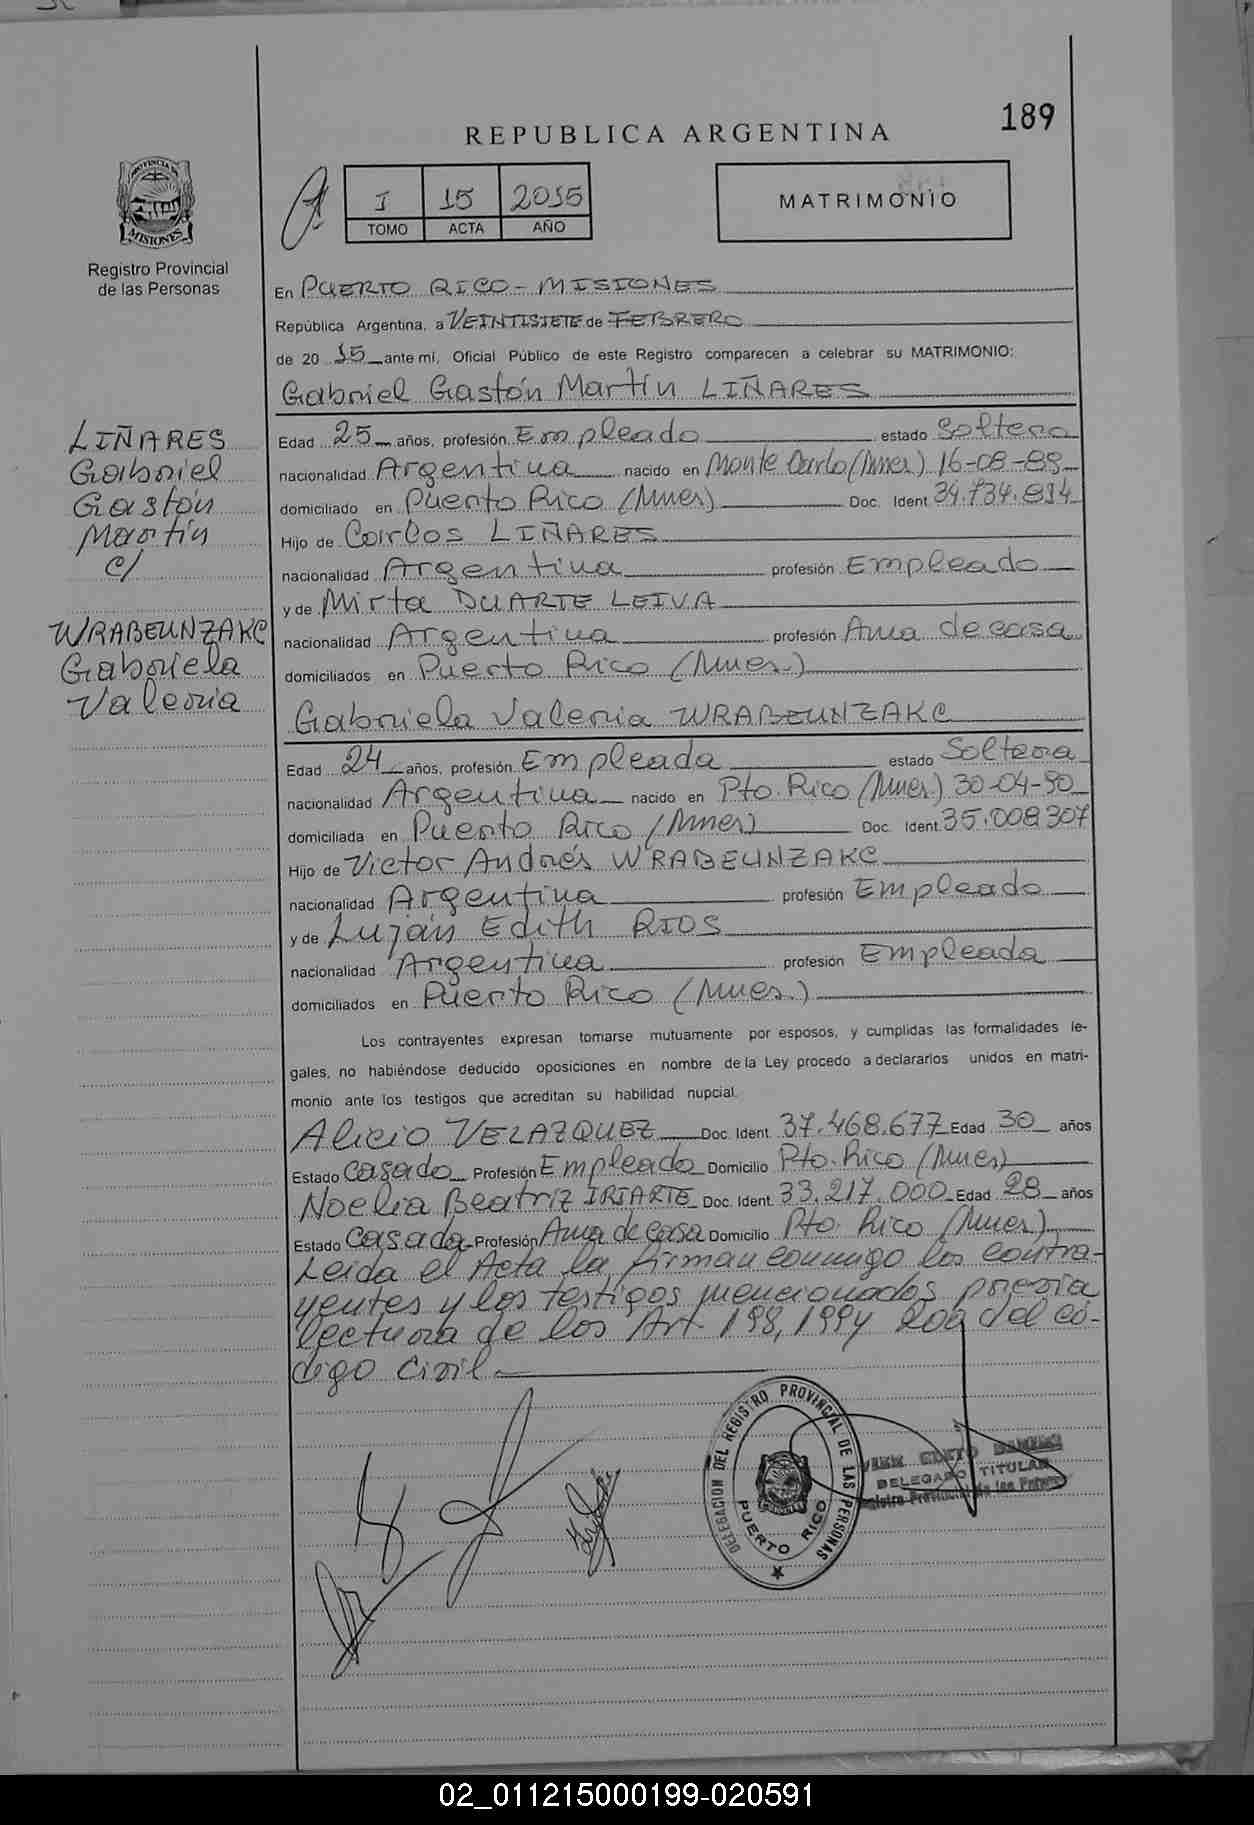 189
REPUBLICA ARGENTINA
I 15 2015
TOMO ACTA AÑO
MATRIMONIO
PROVINCIA DE
MISIONES
Registro Provincial
de las Personas
En PUERTO RICO - MISIONES
República Argentina, a VEINTISIETE de FEBRERO
de 20 15 ante mí, Oficial Público de este Registro comparecen a celebrar su MATRIMONIO:
Gabriel Gastón Martín LIÑARES
LIÑARES
Gabriel
Gastón
Martín
c/
WRABEUNZAKC
Gabriela
Valeria
Edad 25 años, profesión Empleado estado Soltero
nacionalidad Argentina nacido en Monte Carlo (Mnes) 16-08-89
domiciliado en Puerto Rico (Mnes) Doc. Ident. 34.734.894
Hijo de Carlos LIÑARES
nacionalidad Argentina profesión Empleado
y de Mirta DUARTE LEIVA
nacionalidad Argentina profesión Ama de casa
domiciliados en Puerto Rico (Mnes.)
Gabriela Valeria WRABEUNZAKC
Edad 24 años, profesión Empleada estado Soltera
nacionalidad Argentina nacido en Pto. Rico (Mnes.) 30-04-90
domiciliada en Puerto Rico (Mnes) Doc. Ident. 35.008307
Hijo de Victor Andrés WRABEUNZAKC
nacionalidad Argentina profesión Empleado
y de Luján Edith RIOS
nacionalidad Argentina profesión Empleada
domiciliados en Puerto Rico (Mnes.)
Los contrayentes expresan tomarse mutuamente por esposos, y cumplidas las formalidades le-
gales, no habiéndose deducido oposiciones en nombre de la Ley procedo a declararlos unidos en matri-
monio ante los testigos que acreditan su habilidad nupcial.
Alicio VELAZQUEZ Doc. Ident. 37.468.677 Edad 30 años
Estado Casado Profesión Empleado Domicilio Pto. Rico (Mnes)
Noelia Beatriz IRIARTE Doc. Ident. 33.217.000 Edad 28 años
Estado Casada Profesión Ama de casa Domicilio Pto. Rico (Mnes.)
Leida el Acta la firman conmigo los contra-
yentes y los testigos mencionados previa
lectura de los Art. 198, 199 y 200 del có-
digo civil
DELEGACION DEL REGISTRO PROVINCIAL DE LAS PERSONAS
PUERTO RICO
DELEGADO TITULAR
02_011215000199-020591